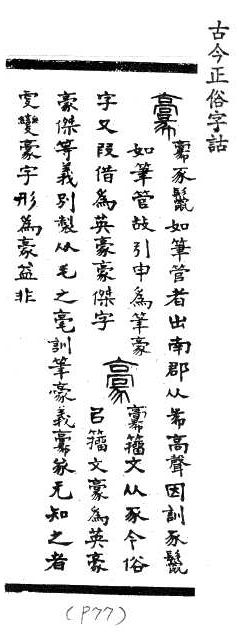 古今正俗字詁
豕鬣如筆管者出南郡从㣇高聲因訓豕鬣
如筆管故引申為筆豪
字又叚借為英豪豪傑字
籀文从豕今俗
㠯籀文豪為英豪
豪傑等義別製从毛之毫訓筆豪義篆无知之者
變豪字形為豪益非
(P77)